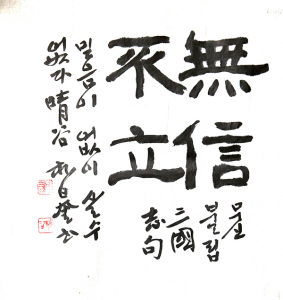 無信
不立
무신
불립
三國
志句
믿음이 없이 설수
없다 晴谷